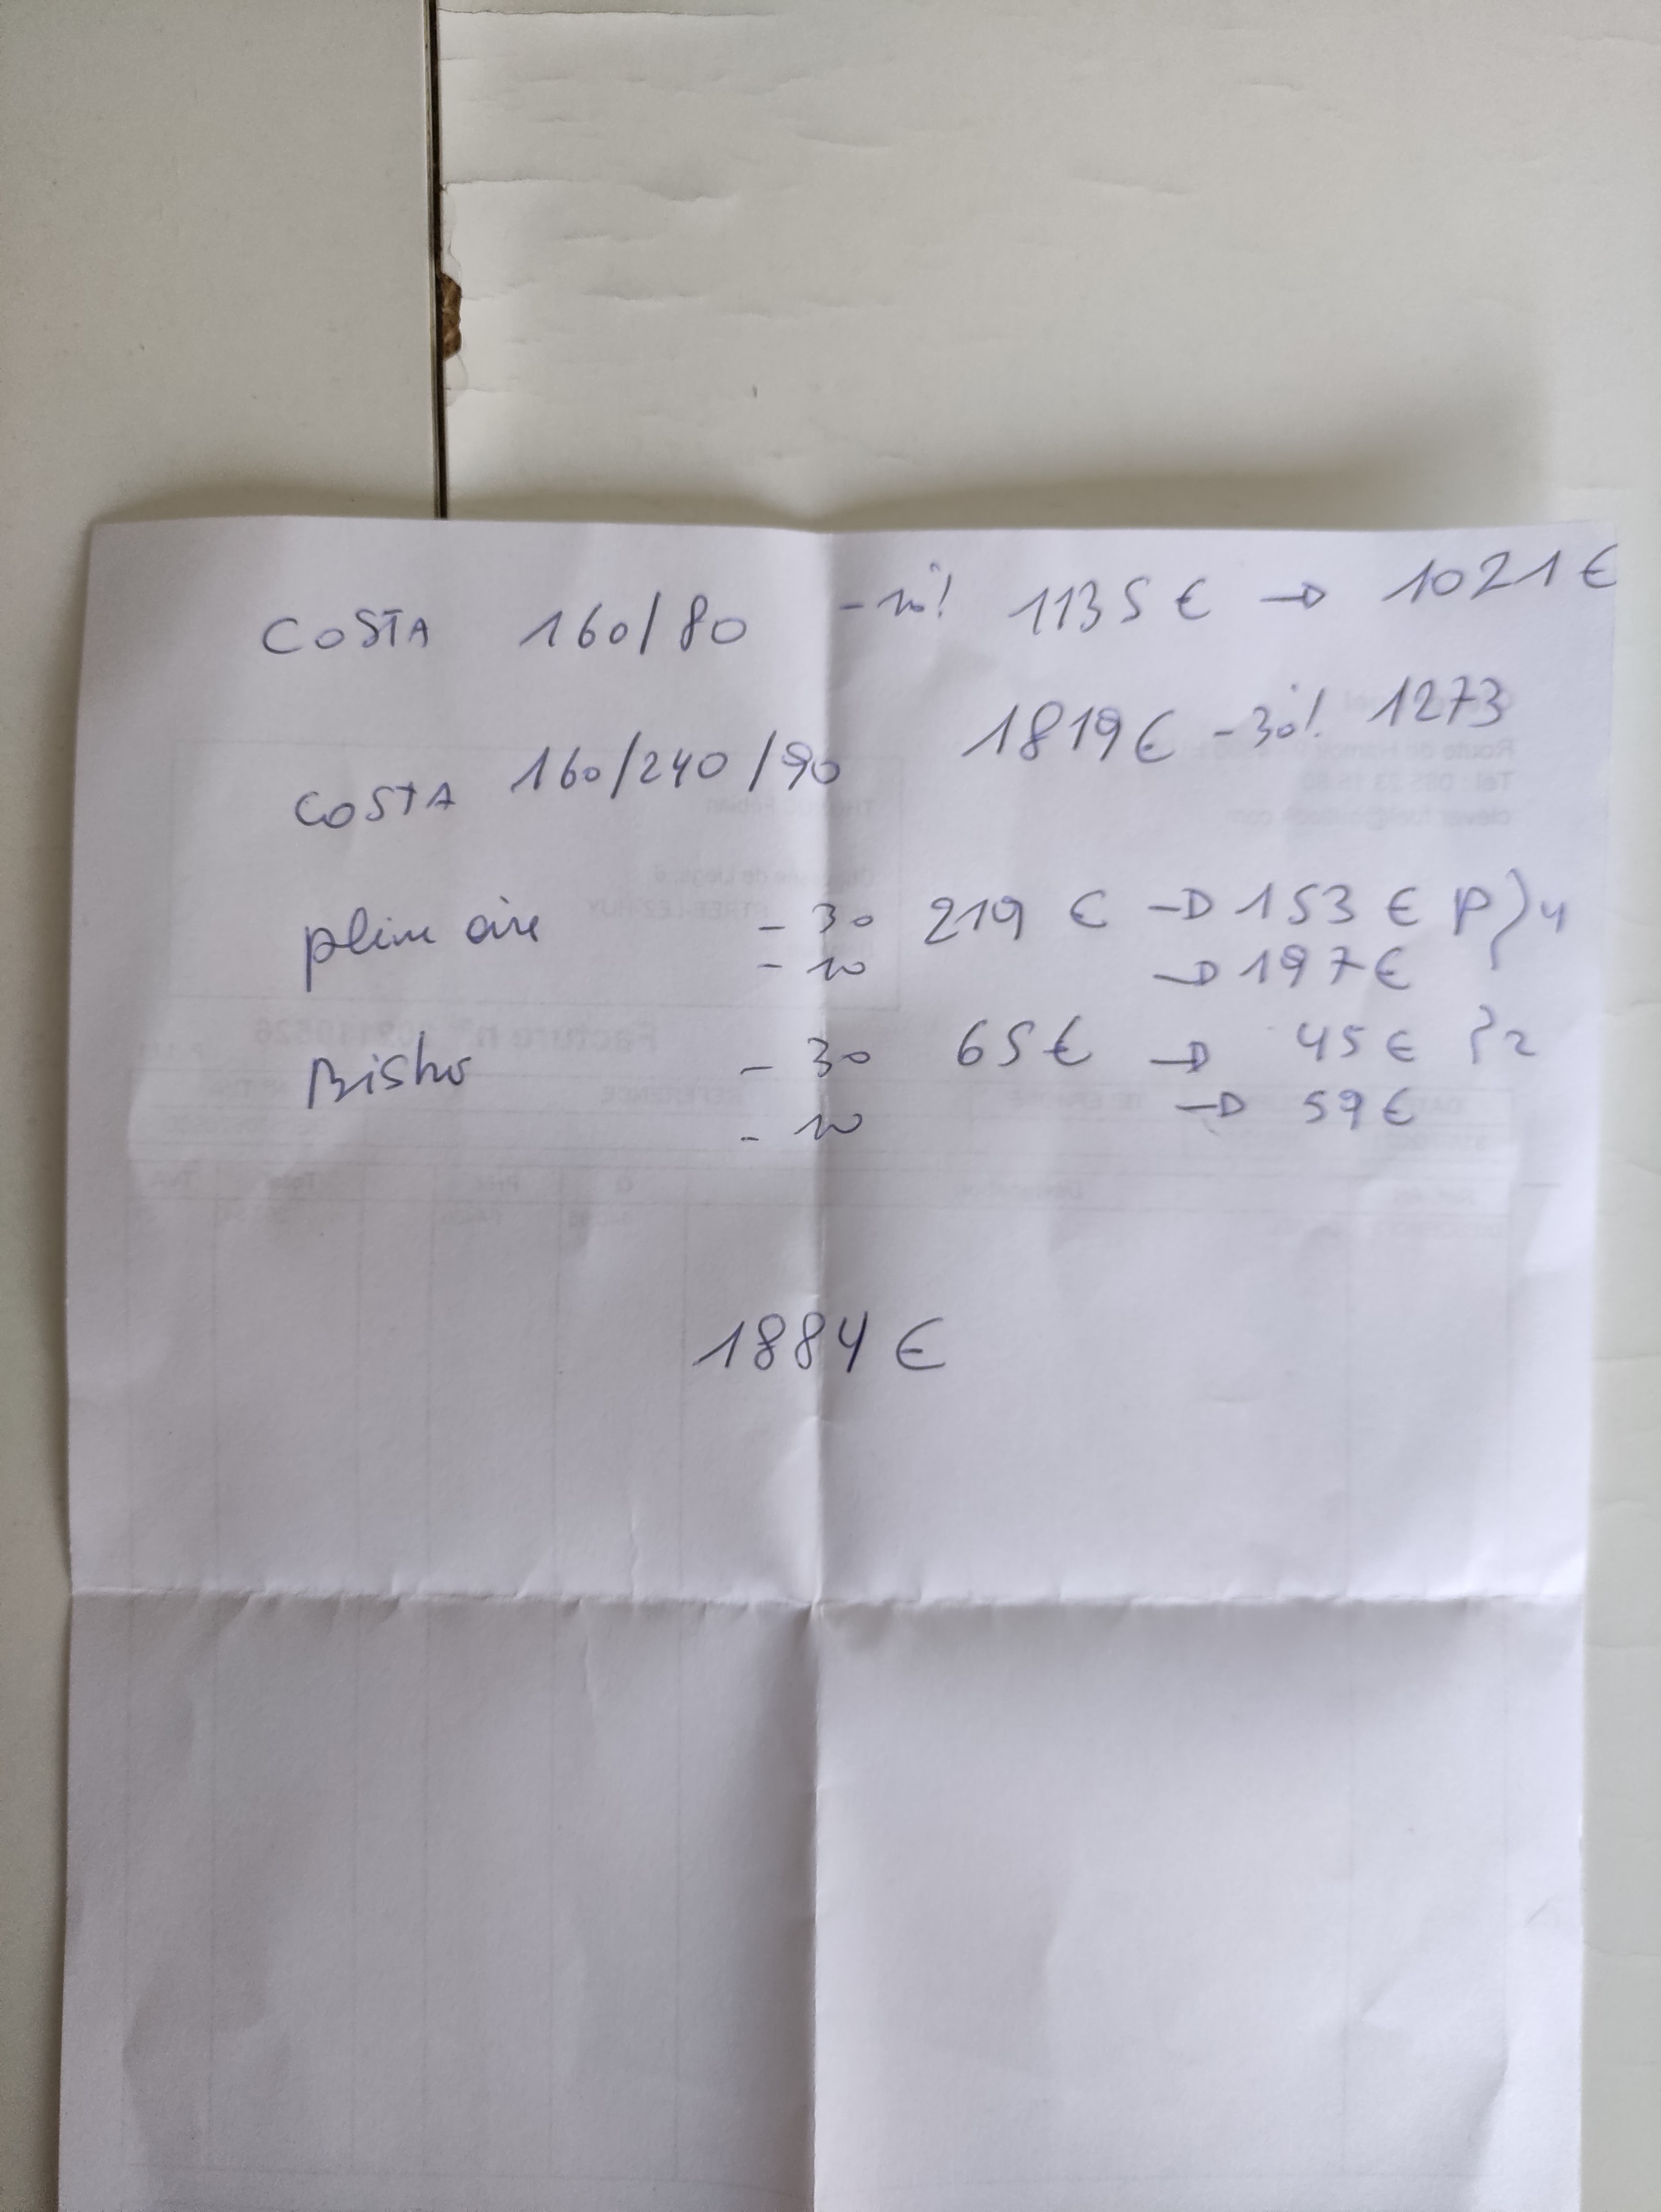 COSTA 160/80 -10% 1135€ → 1021€
COSTA 160/240/90 1819€ -30% 1273
plein air - 30 219 € → 153 € P } 4
- 10 → 197€
Bistro - 30 65€ → 45€ } 2
- 10 → 59€
1884€